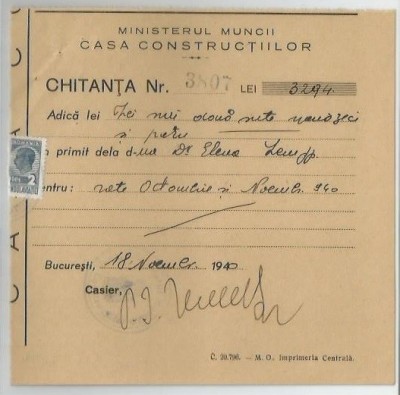 MINISTERUL MUNCII
CASA CONSTRUCȚIILOR
CHITANȚA Nr. 3807 LEI 3294
Adică lei Trei mii două sute nouăzeci
și patru
m primit dela d-na Dr Elena
entru: rate Octombrie și Noembr. 940
București, 18 Noembr. 1940
Casier,
Č. 39.796. — M. O. Imprimeria Centrală.
C A C
ROMANIA
2